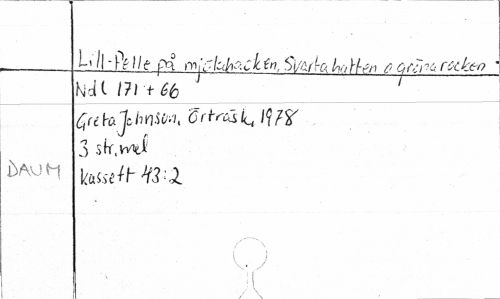 Lill-Pelle på mjölkhacken, Svarta hatten o gröna rocken
Ndl 171 + 66
Greta Johnson, Örträsk, 1978
3 str, mel
DAUM
kassett 43:2